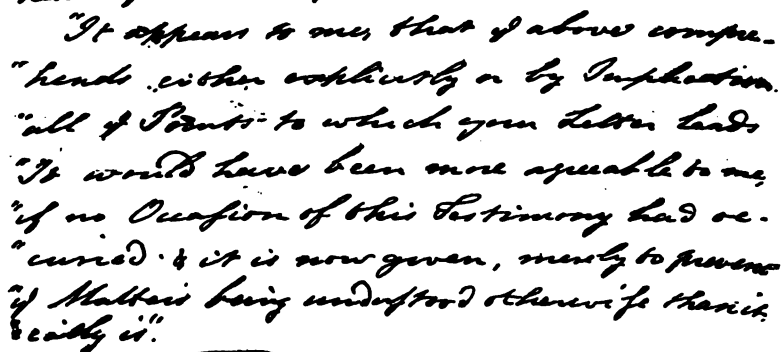 "It appears to me, that ye above compre-
"hends either explicitly or by Implication
"all ye Points to which your Letter leads
"It would have been more agreeable to me,
"if no Occasion of this Testimony had oc-
"curied. & it is now given, merely to prevent
"ye Matters being understood otherwise than it
"really is".